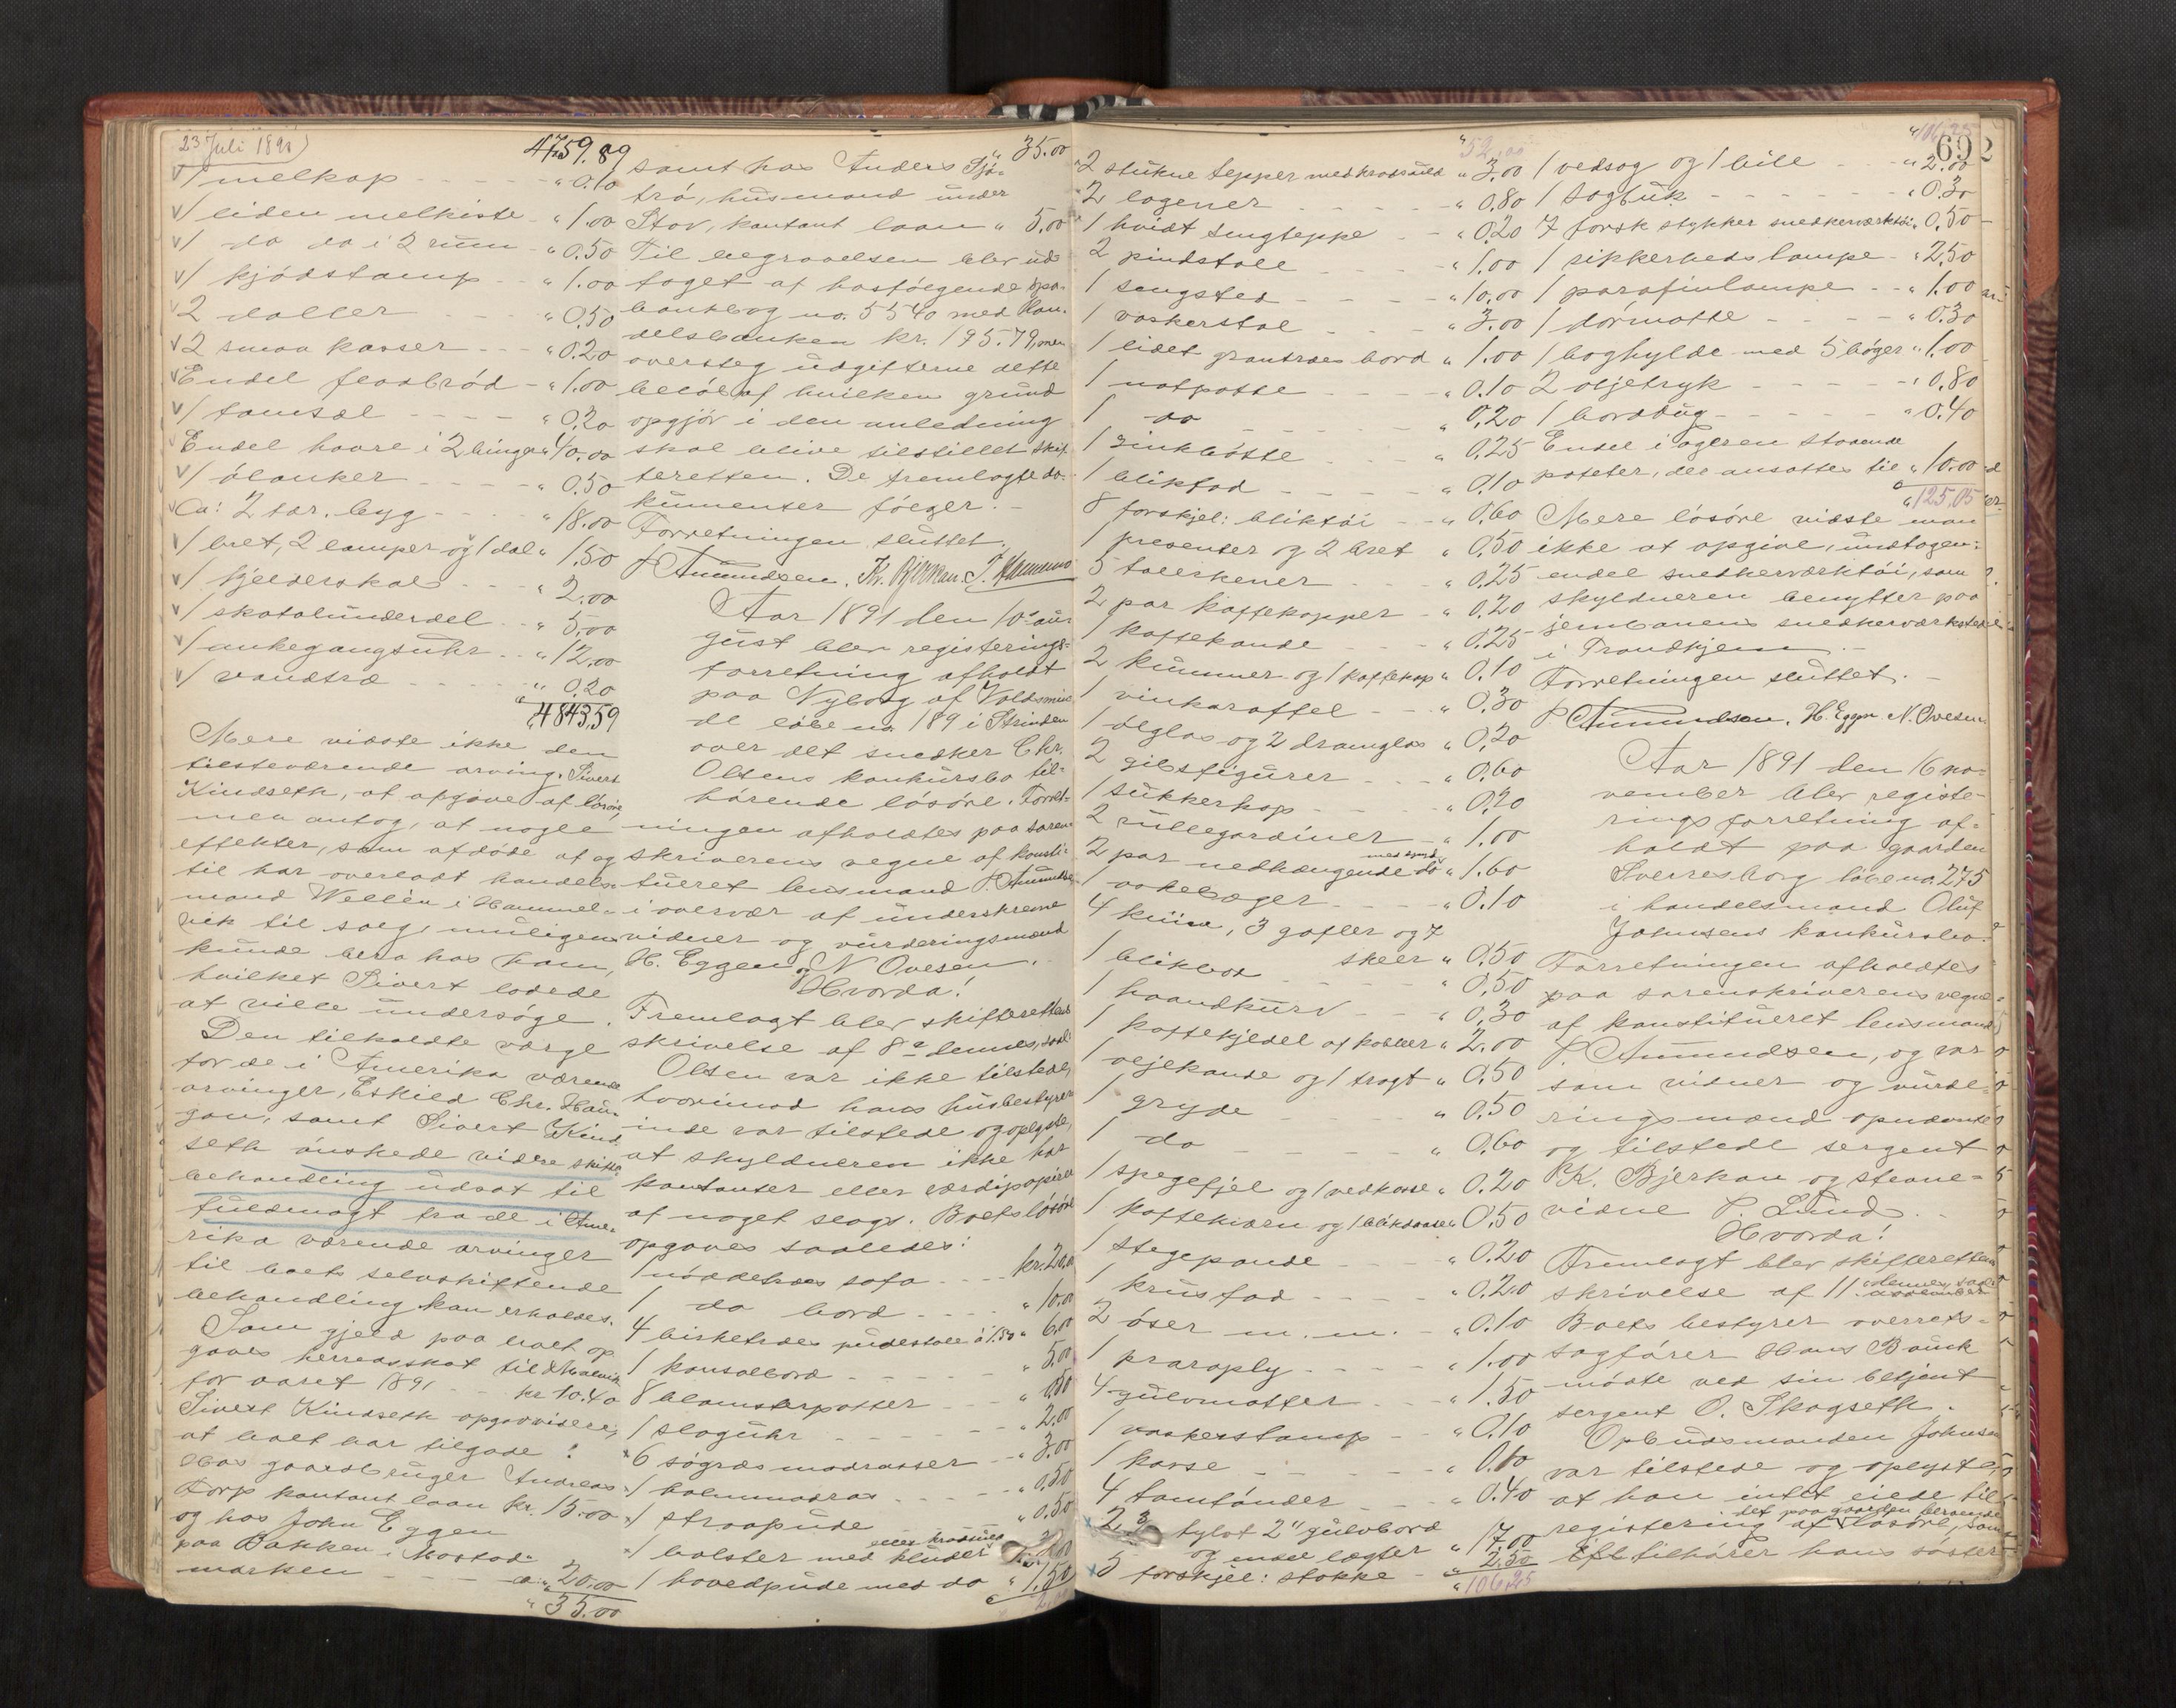 23 Juli 1891)
4759.89
1 melkop - - - - " 0.10
1 liden melkiste - " 1.00
1 do do i 2 rum - " 0.50
1 kjödstamp - - " 1.00
2 daller - - - " 0.50
2 smaa kasser - - " 0.20
Endel fladbröd - " 1.00
1 tomsæl - - - - " 0.20
Endel havre i 2 binger " 40.00
1 ölanker - - - - " 0.50
Ca: 2 tør. byg - - - " 18.00
1 bret, 2 lamper og 1 dal " 1.50
1 fjelderskab - - " 2.00
1 skatolunderdel - - " 5.00
1 ankegangsuhr - - " 12.00
1 vandtræ - - - - " 0.20
4843.59
Mere vidste ikke den
tilstedeværende arving, Sivert
Kindseth, at opgive af lösöre,
men antog, at nogle
effekter, som afdöde af og
til har overladt handels-
mand Wellén i Hommel-
vik til salg, muligens
kunde bero hos ham,
hvilket Sivert lovede
at ville undersöge.
Den tilkaldte værge
for de i Amerika værende
arvinger, Eskild Chr. Hau-
gan, samt Sivert Kind-
seth önskede videre skifte-
behandling udsat til
fuldmagt fra de i Ame-
rika værende arvinger
til boets selvskiftende
behandling kan erholdes.
Som gjeld paa boet op-
gaves herredsskat til Malvik
for aaret 1891 - - kr 10.40
Sivert Kindseth opgav videre,
at boet har tilgode:
Hos gaardbruger Andreas
Torp kontant laan kr. 15.00
og hos John Eggen
paa Bakken i Mostad-
marken - - - - " 20.00
" 35.00
" 35.00
samt hos Anders Sjö-
trö, husmand under
Stav, kontant laan " 5.00
Til begravelsen blev ud-
taget af hosfölgende spa-
bankbog no. 5540 med Han-
delsbanken kr. 195.79, men
oversteg udgifterne dette
belöb, af hvilken grund
opgjör i den anledning
skal blive tilstillet skif-
teretten. De fremlagte do-
kumenter fölger. -
Forretningen sluttet.
P. Amundsen. K. Bjerkan. J. Hammer
Aar 1891 den 10de au-
gust blev registerings-
forretning afholdt
paa Nyborg af Voldsmin-
de löbe no. 189 i Strinden
over det snedker Chr.
Olsens konkursbo til-
hörende lösöre. Forret-
ningen afholdtes paa soren-
skriverens vegne af konsti-
tueret lensmand P. Amundsen
i overvær af underskrevne
vidner og vurderingsmænd
H. Eggen og N Ovesen.
Hvorda!
Fremlagt blev skifterettens
skrivelse af 8de dennes, saal.
Olsen var ikke tilstede,
hvorimod hans husbestyrer-
inde var tilstede og oplyste,
at skyldneren ikke har
kontanter eller værdipapirer
af noget slags. Boets lösöre
opgaves saaledes:
1 nöddetræs sofa - - - kr. 20.00
1 do bord - - - " 10.00
4 birketræs pudestole à 1.50 " 6.00
1 konsolbord - - - - " 5.00
8 blomsterpotter - - " 0.50
1 slaguhr - - - - " 2.00
6 sögræsmadrasser - - " 3.00
1 halmmadras - - - " 0.50
1 straapude " 0.50
1 bolster med kluder
1 hovedpude med do " 1.50
52.00
2 stukne tepper med kradsuld " 3.00
2 lagener - - - - " 0.80
1 hvidt sengteppe - - " 0.20
2 pindstole - - - - " 1.00
1 sengsted - - - - " 10.00
1 vaskerstol - - - " 3.00
1 lidet grantræes bord " 1.00
1 natpotte - - - - " 0.10
1 do - - - - " 0.20
1 zinkbötte - - - - " 0.25
1 blikfad - - - - " 0.10
8 forskjel: bliktöi - - " 0.60
1 presenter og 2 bret " 0.50
5 tallerkener - - - " 0.25
2 par kaffekopper - - " 0.20
1 kaffekande - - - " 0.25
2 kummer og 1 kaffekop " 0.10
1 vinkaraffel - - - " 0.30
1 ölglas og 2 dramglas " 0.20
2 gibsfigurer - - - " 0.60
1 sukkerkop - - - " 0.20
2 rullegardiner - - " 1.00
2 par nedhængende do " 1.60
1 askebæger - - - " 0.10
4 knive, 3 gafler og 7
skeer " 0.50
1 blikbox - - - - " 0.50
1 haandkurv - - - " 0.30
1 kaffekjedel af kobber " 2.00
1 oljekande og 1 tragt " 0.50
1 gryde " 0.50
1 do - - - - - " 0.60
1 spegefjel og 1 vedkasse " 0.20
1 kaffekværn og 1 blikdaase " 0.50
1 stegepande - - - " 0.20
1 krusfad - - - - " 0.20
2 öser m. m. - - - " 0.10
1 praraply - - - - " 1.00
4 gulvmatter - - - " 1.50
1 vaskerstamp - - " 0.10
1 kasse - - - - - " 0.10
4 tomtönder - - - " 0.40
2,3 tylvt 2" gulvbord
og endel lægter " 17.00
5 forskjel: stokke - " 2.50
" 106.25
" 106.25
692
1 vedsag og 1 bile - - - " 2.00
1 sagbuk - - - - - " 0.30
7 forsk stykker snedkerværktöi " 0.50
1 sikkerhedslampe - " 2.50
1 parafinlampe - - " 1.00
1 dörmatte - - - - " 0.30
1 boghylde med 5 böger " 1.00
2 oljetryk - - - - - " 0.80
1 borddug - - - - - " 0.40
Endel i ageren staaende
poteter, der ansattes til " 10.00
" 125.05
Mere lösöre vidste man
ikke at opgive, undtagen:
endel snedkerværktöi, som
skyldneren benytter paa
jernbanens snedkerværksted
i Trondhjem. -
Forretningen sluttet. -
P. Amundsen. H. Eggen N. Ovesen
Aar 1891 den 16 no-
vember blev registe-
ringsforretning af-
holdt paa gaarden
Sverresborg löbe no 275
i handelsmand Oluf
Johnsens konkursbo.
Forretningen afholdtes
paa sorenskriverens vegne
af konstitueret lensmand
P. Amundsen, og var
som vidner og vurde-
ringsmænd opnævnte
og tilstede sergent
K. Bjerkan og stevne-
vidne P. Lund. -
Hvorda!
Fremlagt blev skifterettens
skrivelse af 11. dennes, saal.
Boets bestyrer overrets-
sagförer Hans Bauck
mödte ved sin betjent
sergent O. Skogseth.
Opbudsmanden Johnsen
var tilstede og oplyste,
at han intet eiede til
registering af det paa gaarden beroende lösöre, som
tilhörer hans söster